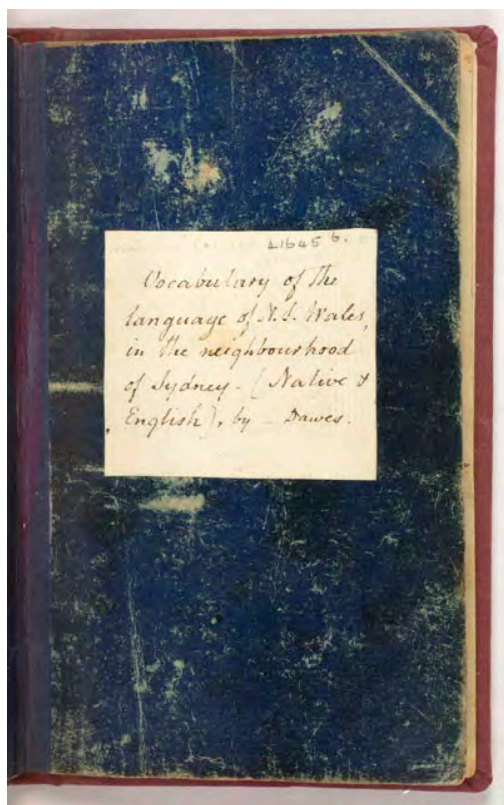 41645 b.
Vocabulary of the
language of N. S. Wales,
in the neighbourhood
of Sydney - (Native &
English), by - Dawes.